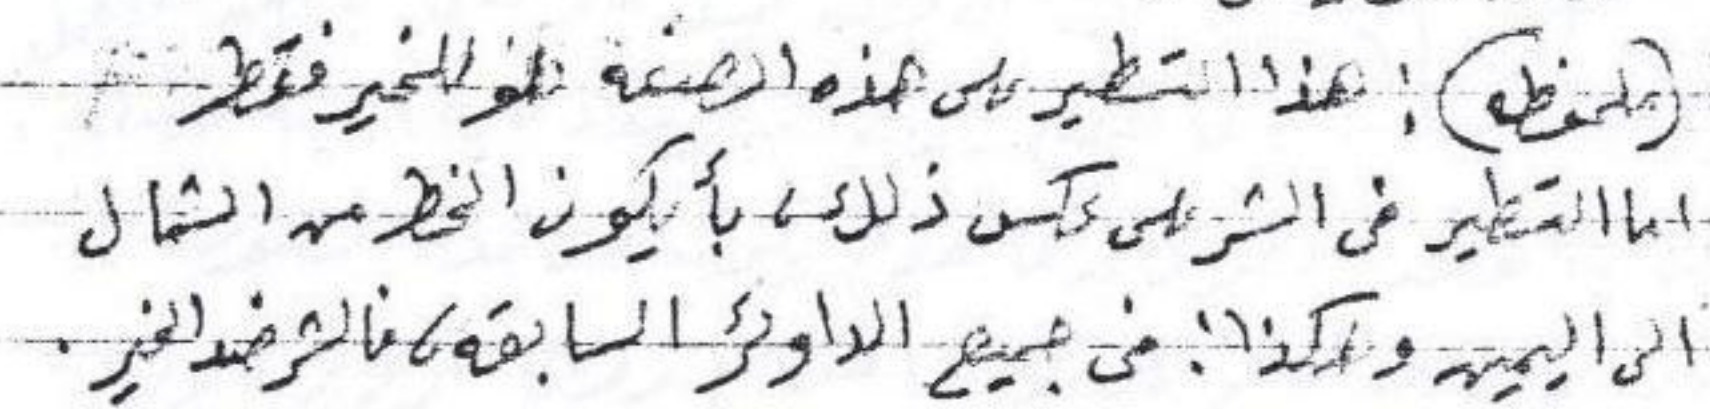 (ملحوظه) : هذا التسطير على هذه الصفه هو للخير فقط
اما التسطير فى الشر على عكس ذلك، بأ يكون الخط من الشمال
الى اليمين وهكذا: فى جميع الداوئر السابقه، فالشر ضد الخير .